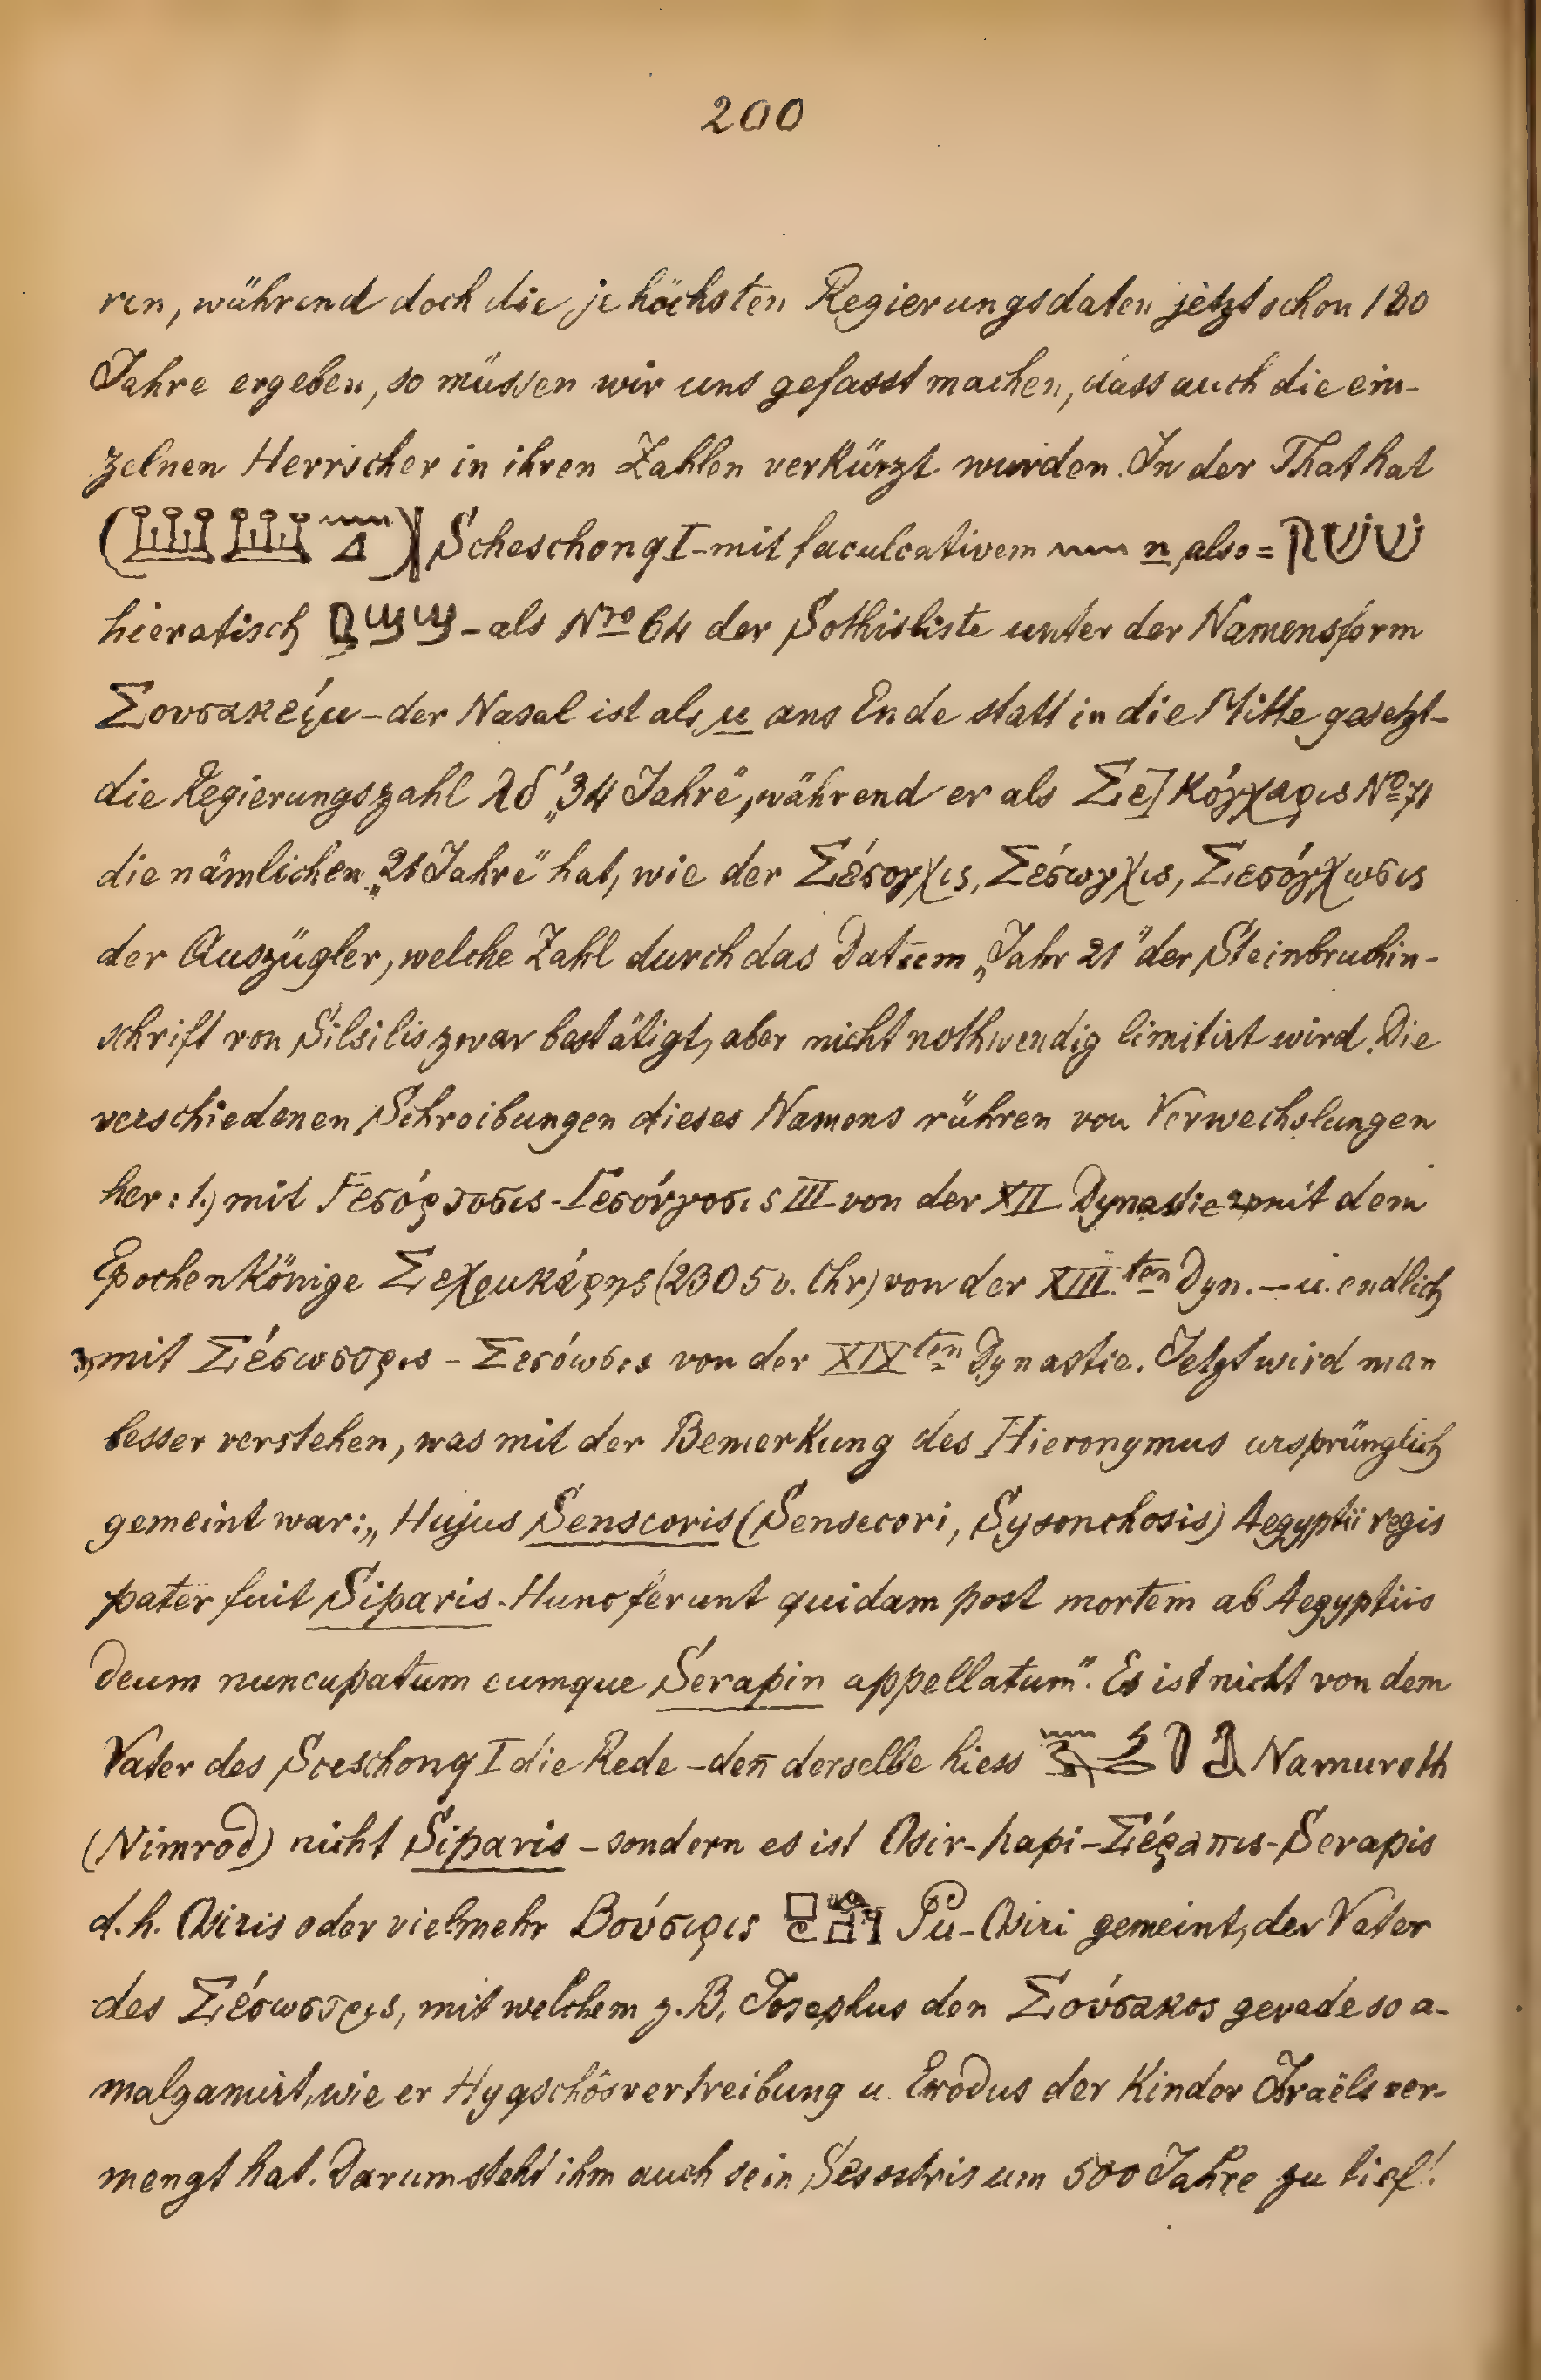 200
ren, während doch die je höchsten Regierungsdaten jetzt schon 180
Jahre ergeben, so müssen wir uns gefasst machen, dass auch die ein-
zelnen Herrscher in ihren Zahlen verkürzt wurden. In der That hat
Scheschonq I - mit faculcativem n, also =
hieratisch - als Nro 64 der Sothisliste unter der Namensform
Σουσακείμ - der Nasal ist als μ ans Ende statt in die Mitte gesetzt -
die Regierungszahl λδ´ „34 Jahre“, während er als Σε]κόγχαρις No 71
die nämlichen „21 Jahre“ hat, wie der Σέσογχις, Σέσωγχις, Σεσόγχωσις
der Auszügler, welche Zahl durch das Datum „Jahr 21“ der Steinbruchin-
schrift von Silsilis zwar bestätigt, aber nicht nothwendig limitirt wird. Die
verschiedenen Schreibungen dieses Namens rühren von Verwechslungen
her: 1.) mit Γεσόρτοσις - Γεσόνγοσις III von der XII Dynastie 2) mit dem
Epochenkönige (2305 v. Chr) von der XIII.ten Dyn. — u. endlich
3, mit Σέσωστρις - Σεσόωσις von der XIXten Dynastie. Jetzt wird man
besser verstehen, was mit der Bemerkung des Hieronymus ursprünglich
gemeint war: „Hujus Senscoris (Sensecori, Sysonchosis) Aegyptii regis
pater fuit Siparis. Hunc ferunt quidam post mortem ab Aegyptiis
deum nuncupatum eumque Serapin appellatum“. Es ist nicht von dem
Vater des Sceschonq I die Rede - den̄ derselbe hiess Namuroth
(Nimrod) nicht Siparis - sondern es ist Osir-hapi - Σέραπις - Serapis
d. h. Osiris oder vielmehr Βούσιρις Pu-Osiri gemeint, der Vater
des Σέσωστρις, mit welchem z. B. Josephus den Σούσακος gerade so a-
malgamirt, wie er Hyqschôsvertreibung u. Exodus der Kinder Israëls ver-
mengt hat. Darum steht ihm auch sein Sesostris um 500 Jahre zu tief!